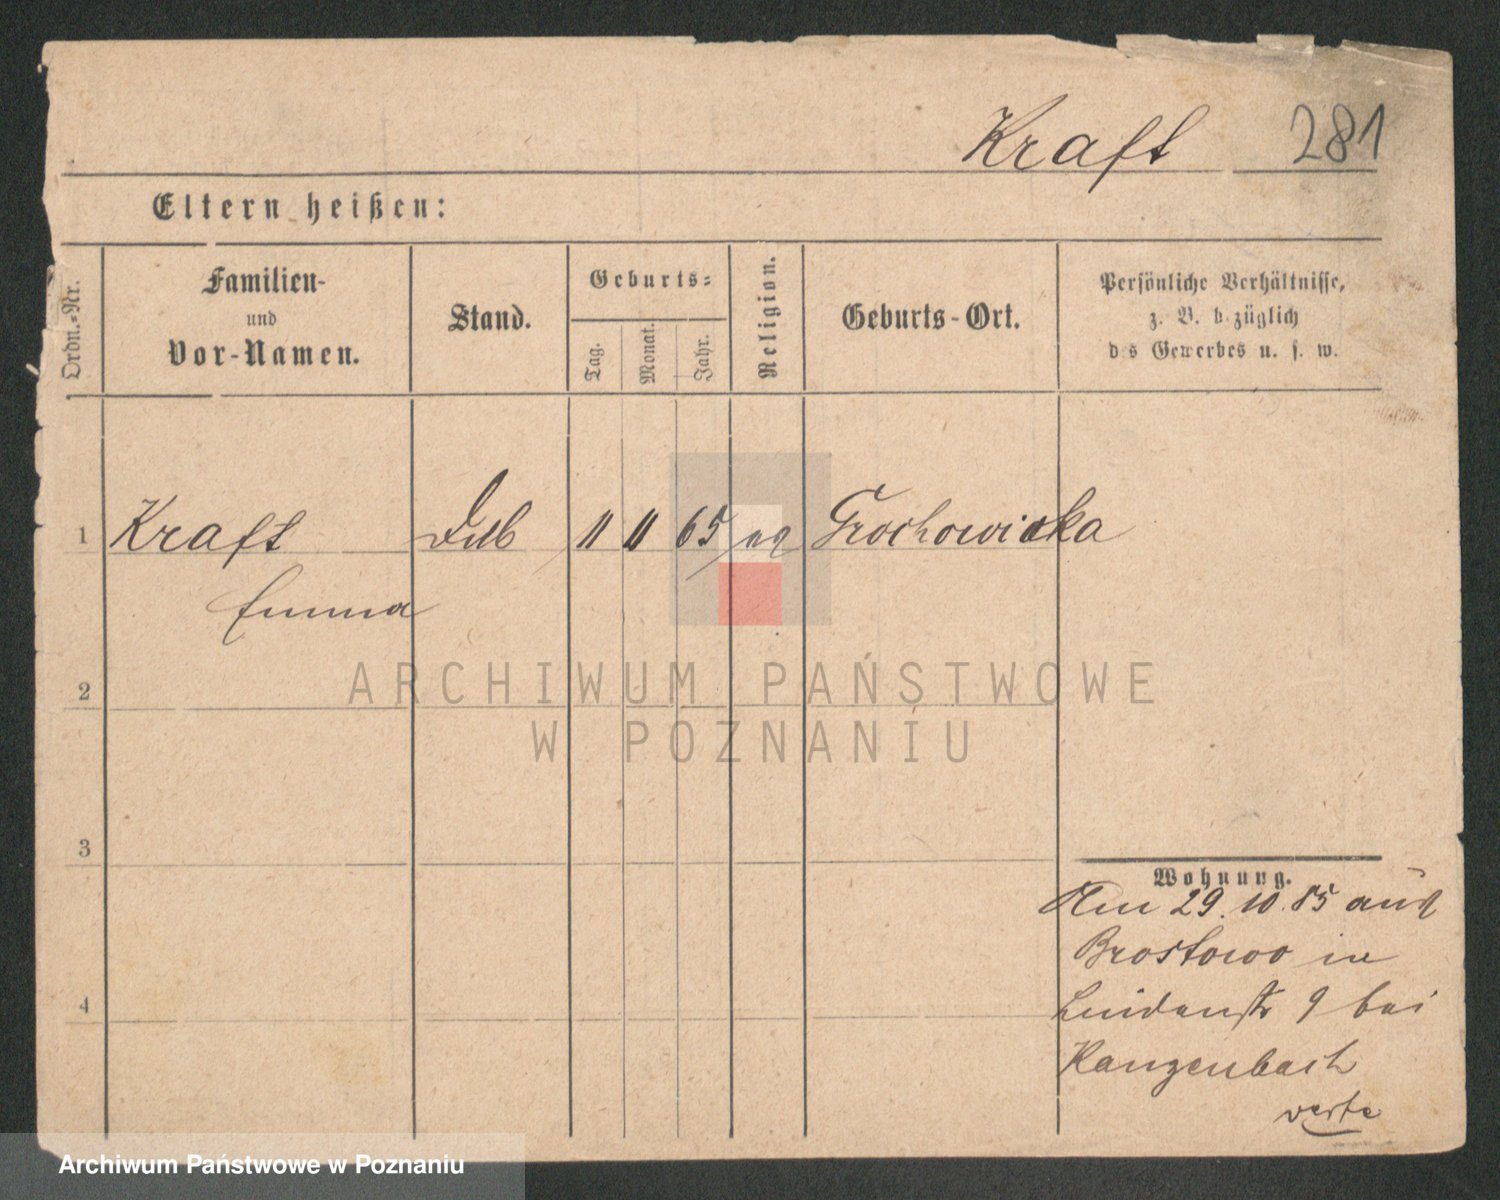 Kraft 281
Eltern heißen:
Ordn.-Nr.
Familien-
und
Vor-Namen.
Stand.
Geburts-
Tag.
Monat.
Jahr.
Religion.
Geburts-Ort.
Persönliche Verhältnisse,
z. B. bezüglich
des Gewerbes u. s. w.
1 Kraft 11 11 65
Emma
2
3
4
Wohnung.
Am 29.10.85 aus
Brostowo in
Lindenstr 9 bei
Kanzenbach
verte
ARCHIWUM PAŃSTWOWE
W POZNANIU
Archiwum Państwowe w Poznaniu